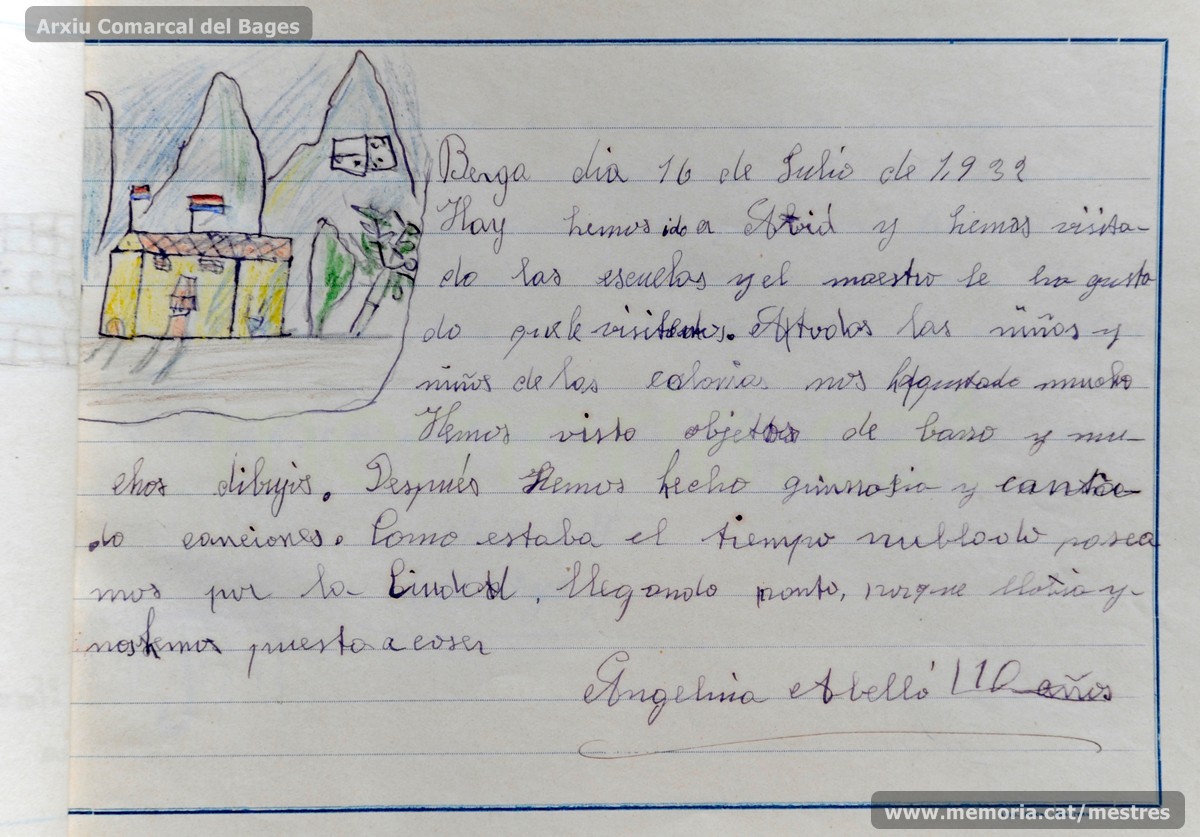 Arxiu Comarcal del Bages
Berga dia 16 de Julio de 1,932
Hay hemos ido a Aviá y hemos visita-
do las escuelas y el maestro le ha gusta
do que le visitemos. A todos las niños y
niñas de las colonias nos ha gustado mucho
Hemos visto objetos de barro y mu-
chos dibujos. Después Hemos hecho gimnasia y canta
do canciones. Como estaba el tiempo nublado pasea
mos por la Ciudad, llegando pronto, porque llovia y
nos hemos puesto a coser
Angelina Abelló 10 años
www.memoria.cat/mestres